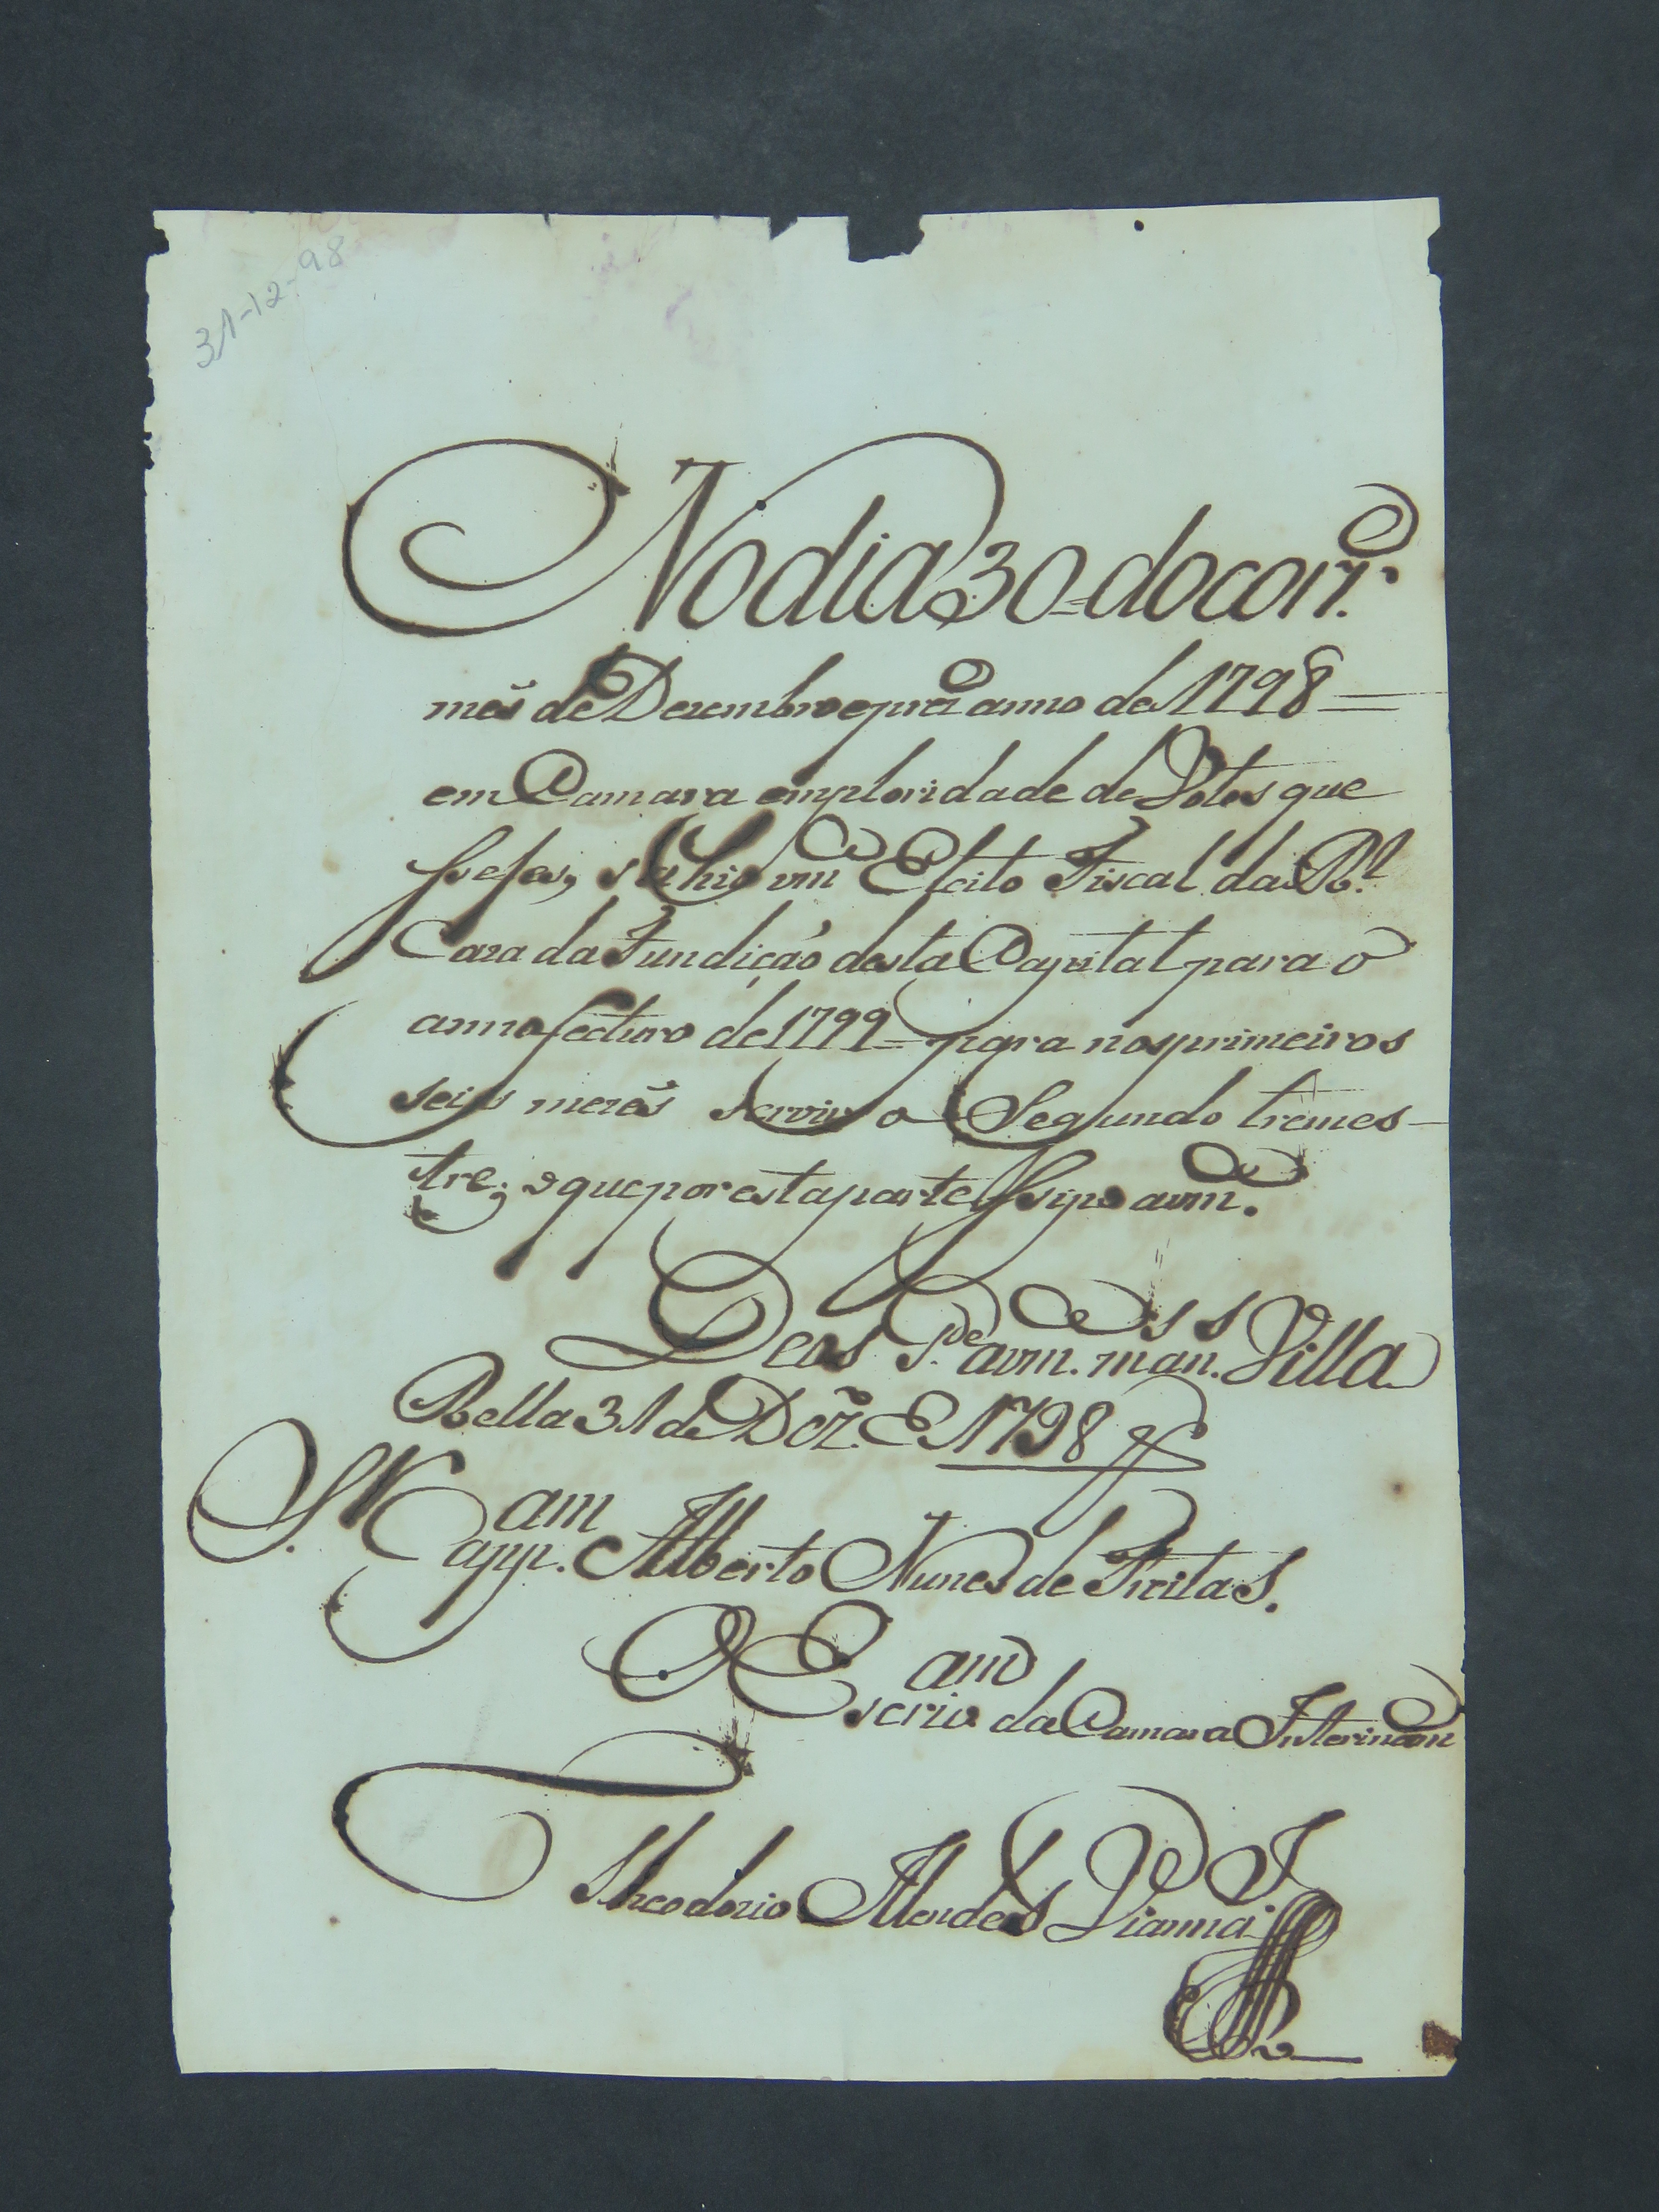 31-12-98
No dia 30=do corr.e
mês de Dezembro e prez.e anno de 1798=
em Camara em ploridade de Votos que
sefes, sahio vm.ce Eleito Fiscal da R.l
Caza da Fundição desta Capital para o
anno fecturo de 1799= para nos primeiros
seis mezes servir o Segundo trimes-
tre; e que por esta partesipo avm.ce
Deos g.de avm.ces man. s Villa
Bella 31 de Dez.o E 1798
S.r Capp.am Alberto Nunes de Freitas.
O Escriv.am da Camara Interin
Theodozio Mendes Vianna